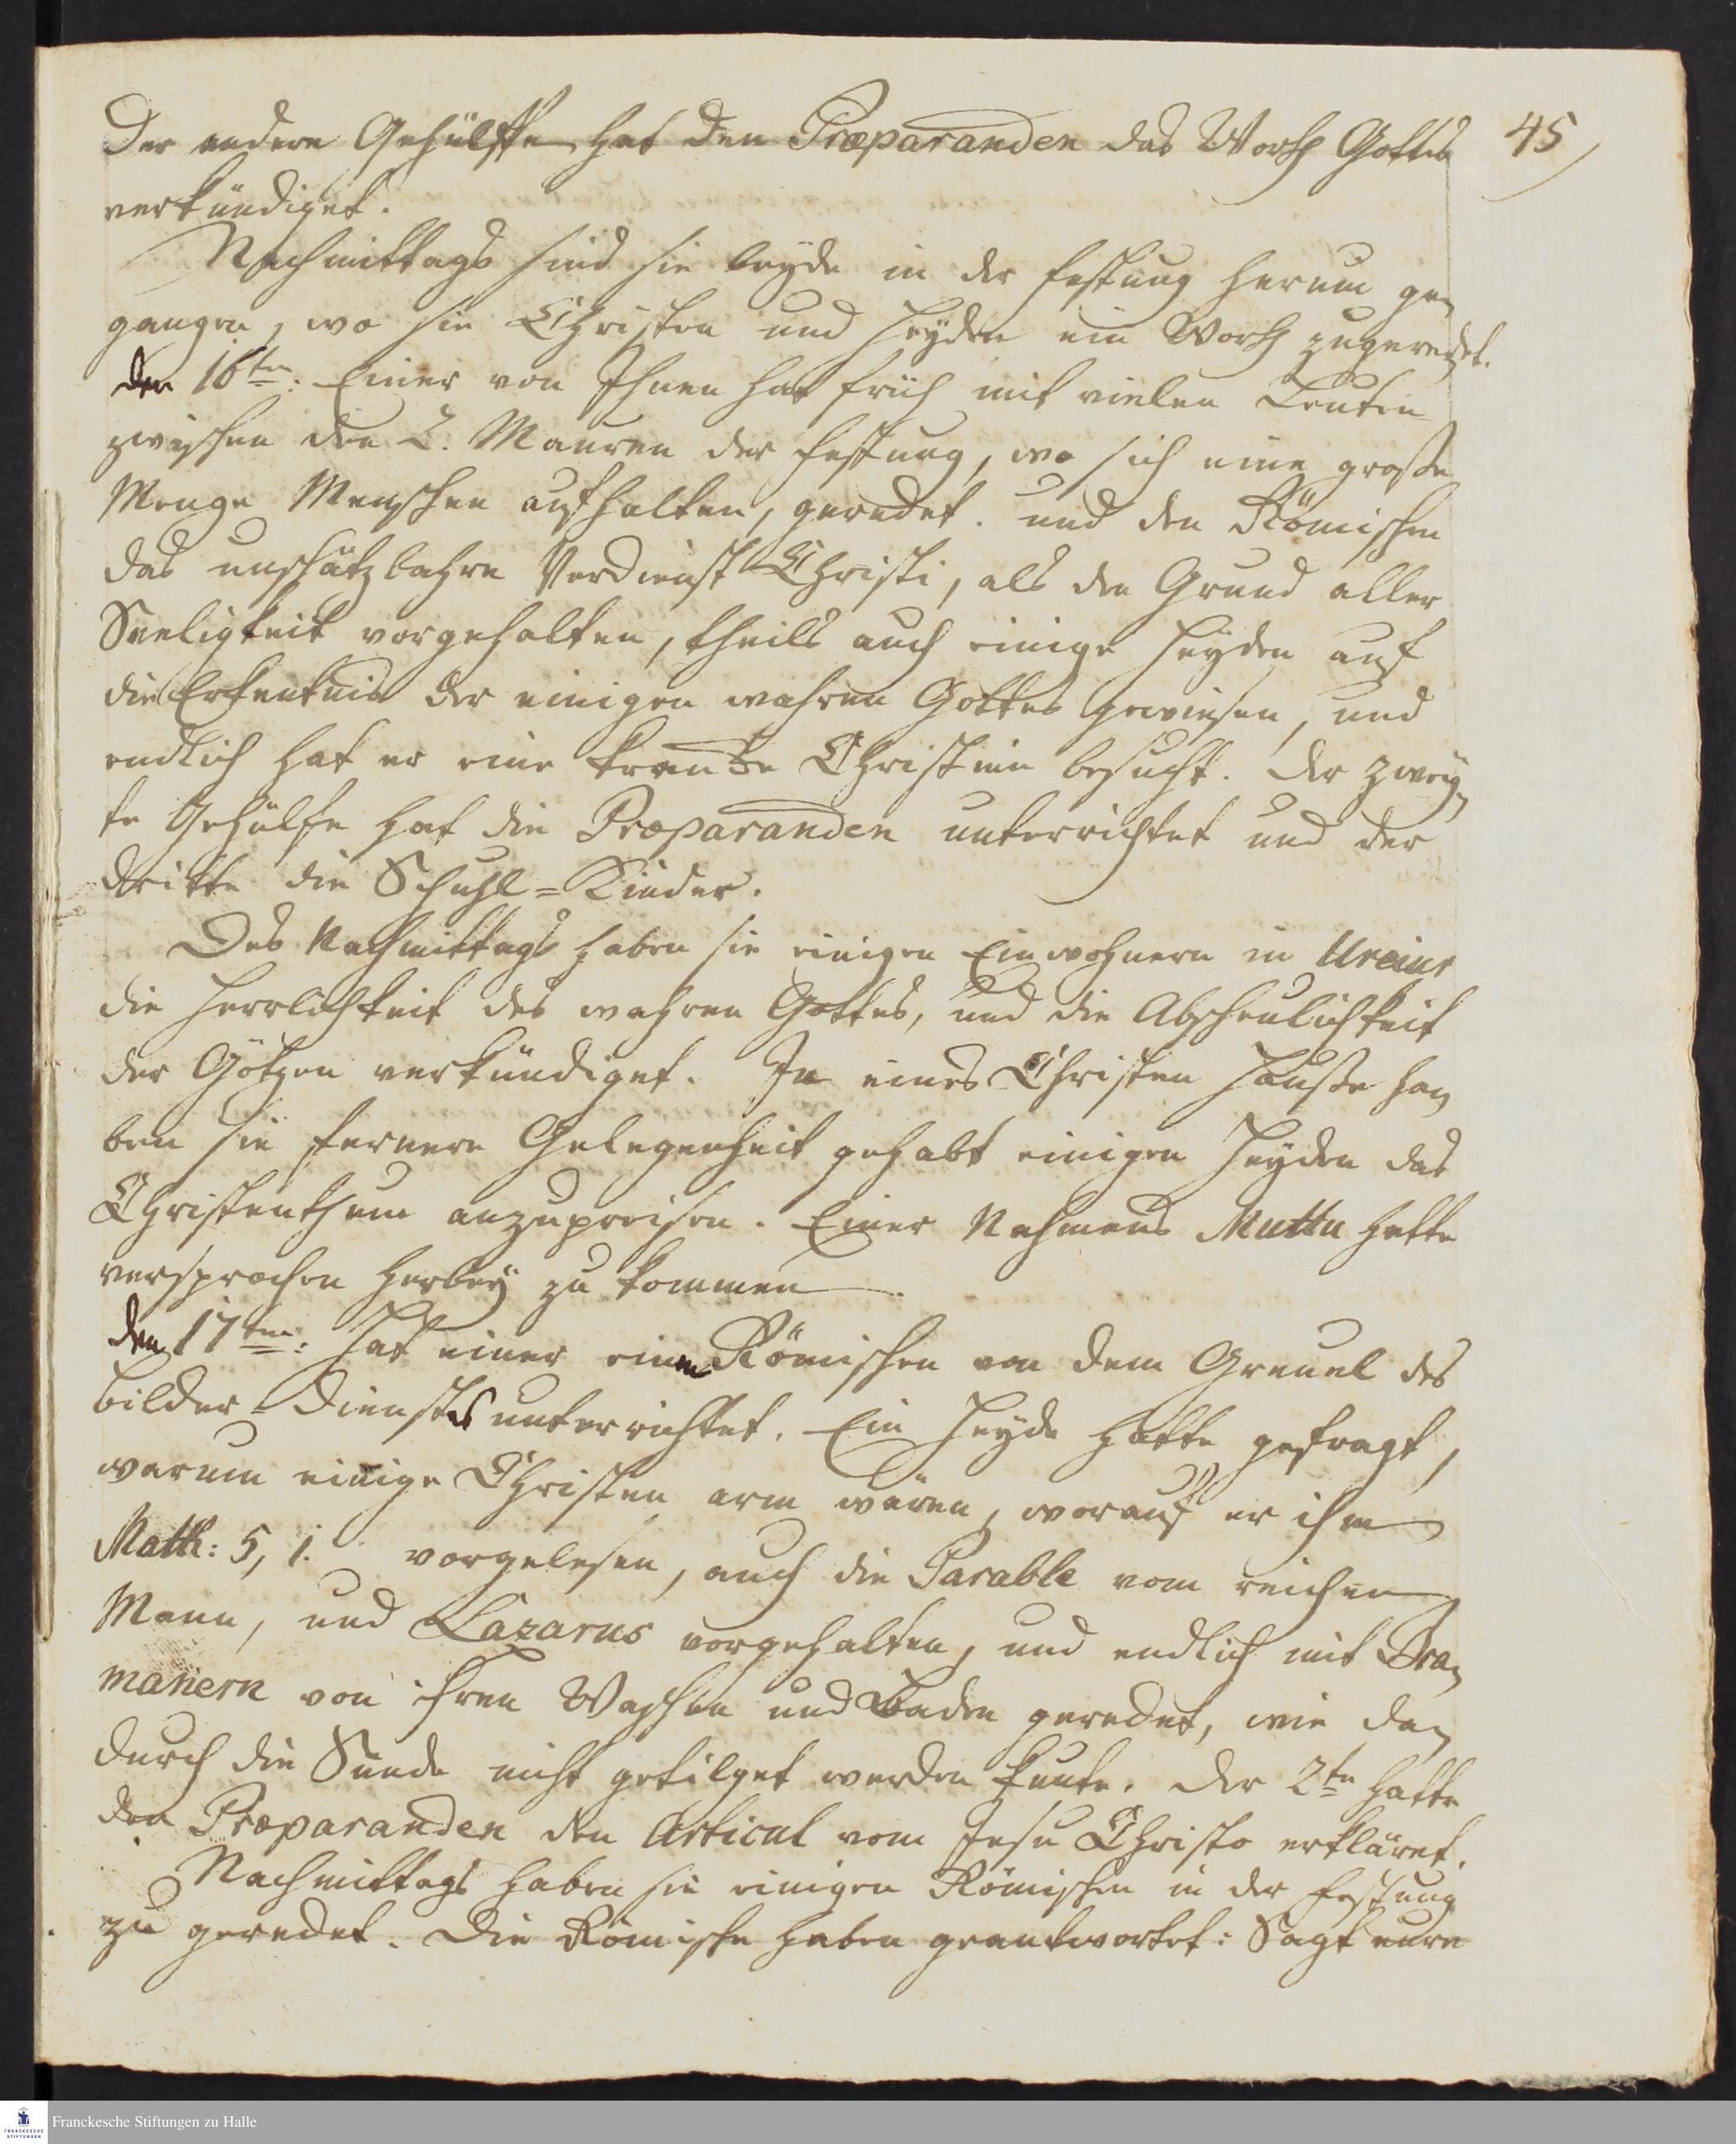 Der andere Gehülffe hat den Præparanden das Worth Gottes 45
verkündiget.
Nachmittags sind sie beyde in der Festung herum ge-
gangen, wo sie Christen und Heyden ein Worth zugeredet.
den 16ten. Einer von Ihnen hat früh mit vielen Leuten
zwischen den 2. Mauren der Festung, wo sich eine große
Menge Menschen aufhalten, geredet. und den Römischen
das unschätzbahre Verdienst Christi, als den Grund aller
Seeligkeit vorgehalten, theils auch einige Heyden auf
die Erkentnis der einigen wahren Gottes gewiesen, und
endlich hat er eine krancke Christinn besucht. Der zwey-
te Gehülfe hat die Præparanden unterrichtet und der
dritte die Schuhl-Kinder.
Des Nachmittags haben sie einigen Einwohnern in Ureiur
die Herrlichkeit des wahren Gottes, und die Abscheulichkeit
der Götzen verkündiget. In eines Christen Hauße ha-
ben sie fernere Gelegenheit gehabt einigen Heyden das
Christenthum anzupreisen. Einer Nahmens Muttu hatte
versprochen herbey zu kommen.
den 17ten: Hat einer einen Römischen von dem Greuel des
Bilder-Dienstes unterrichtet. Ein Heyde hatte gefragt,
warum einige Christen arm wären, worauf er ihm
Matth: 5, 1. vorgelesen, auch die Parable vom reichen
Mann, und Lazarus vorgehalten, und endlich mit Bra-
manern von ihren Waschen und Baden geredet, wie da-
durch die Sünde nicht getilget werden könte. Der 2te hatte
den Præparanden den Articul vom Jesu Christo erkläret.
Nachmittags haben sie einigen Römischen in der Festung
zu geredet. Die Römische haben geantwortet: Sagt eure
Franckesche Stiftungen zu Halle
FRANCKESCHE
STIFTUNGEN